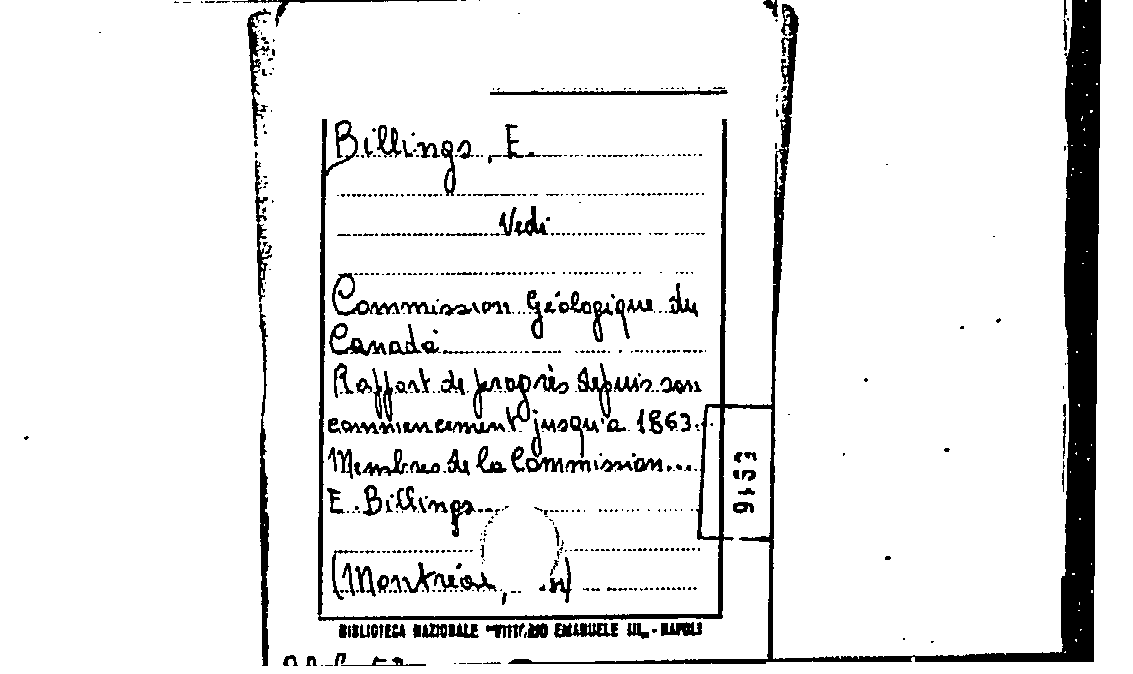 Billings, E.
Vedi
Commission Géologique du
Canada.
Rapport de progrès depuis son
commencement jusqu'a 1863.
Membres de la Commission...
E. Billings.
(Montréal,
BIBLIOTECA NAZIONALE "VITTORIO EMANUELE III„ - NAPOLI